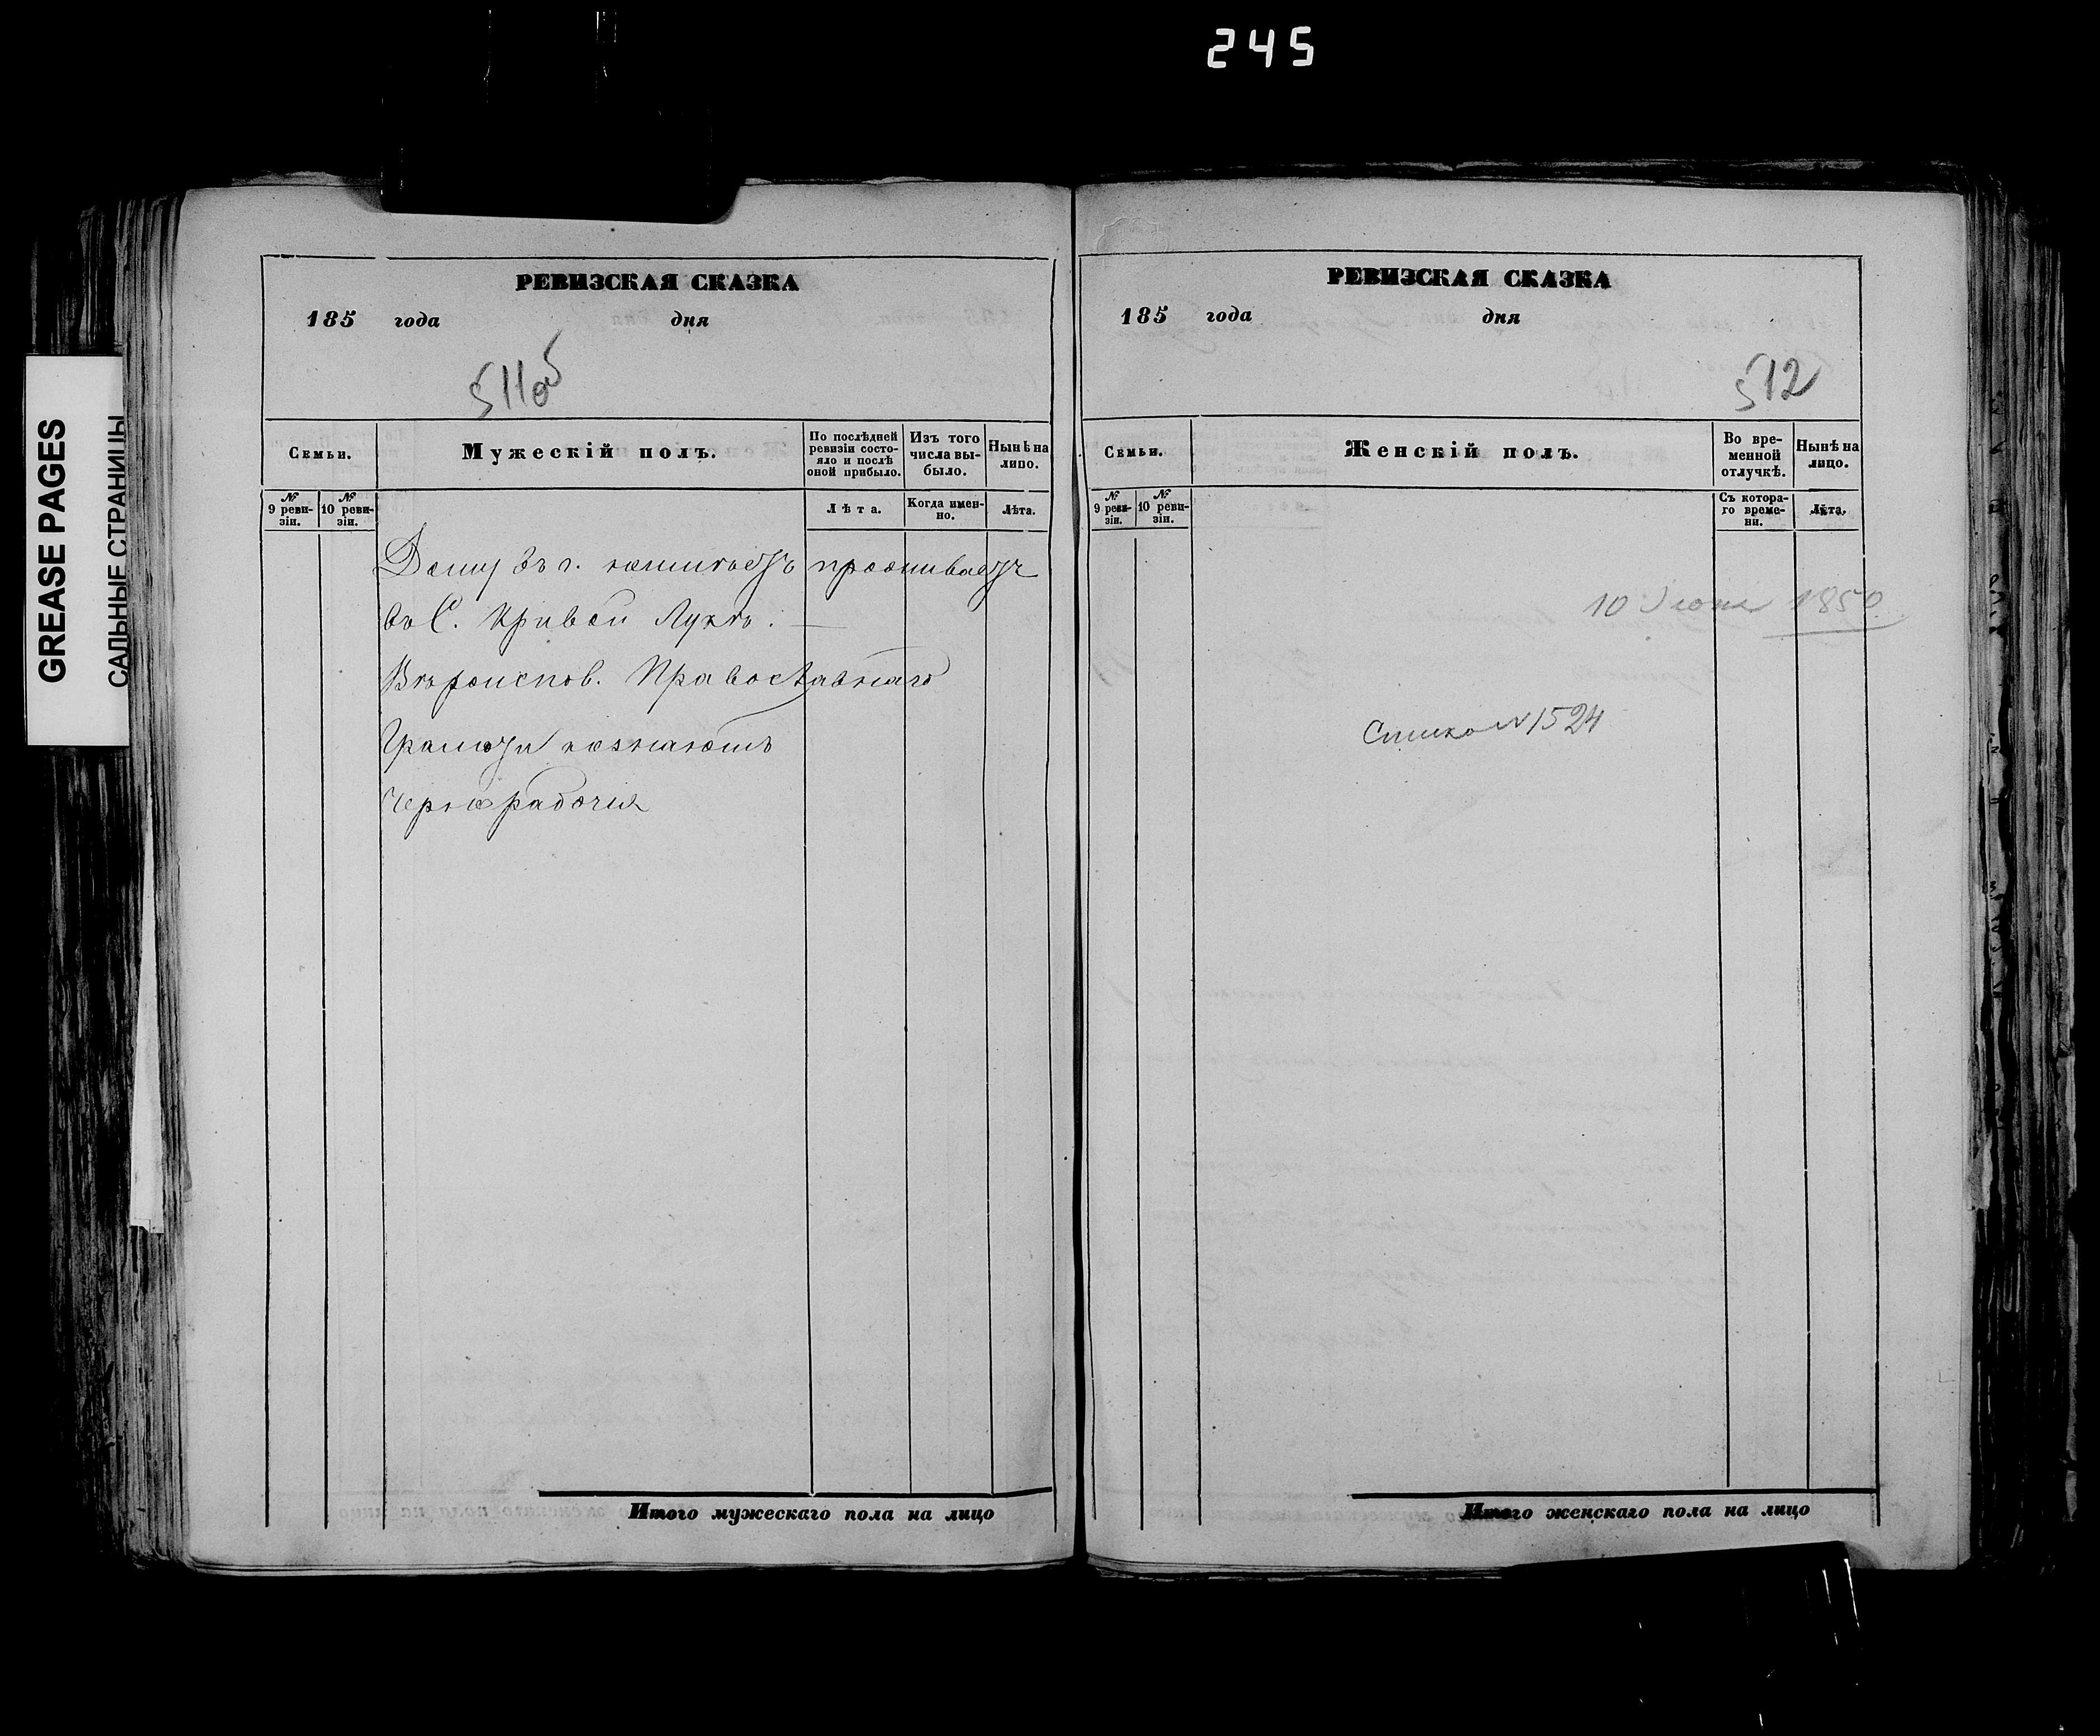 245
GREASE PAGES
САЛЬНЫЕ СТРАНИЦЫ
РЕВИЗСКАЯ СКАЗКА
185 года дня
511об
Семьи.
Мужескій полъ.
По послѣдней ревизіи состояло и послѣ оной прибыло.
Изъ того числа выбыло.
Нынѣ на лицо.
№ 9 ревизіи.
№ 10 ревизіи.
Лѣта.
Когда именно.
Лѣта.
Дому въ г. неимѣетъ проживаетъ
въ С. Кривой Лукѣ.
Вѣроиспов. Православнаго
Грамоты незнаютъ
Чернорабочія
Итого мужескаго пола на лицо
РЕВИЗСКАЯ СКАЗКА
185 года дня
512
Семьи.
Женскій полъ.
Во временной отлучкѣ.
Нынѣ на лицо.
№ 9 ревизіи.
№ 10 ревизіи.
Съ котораго времени.
Лѣта.
10 Іюня 1850
№ 1524
Итого женскаго пола на лицо